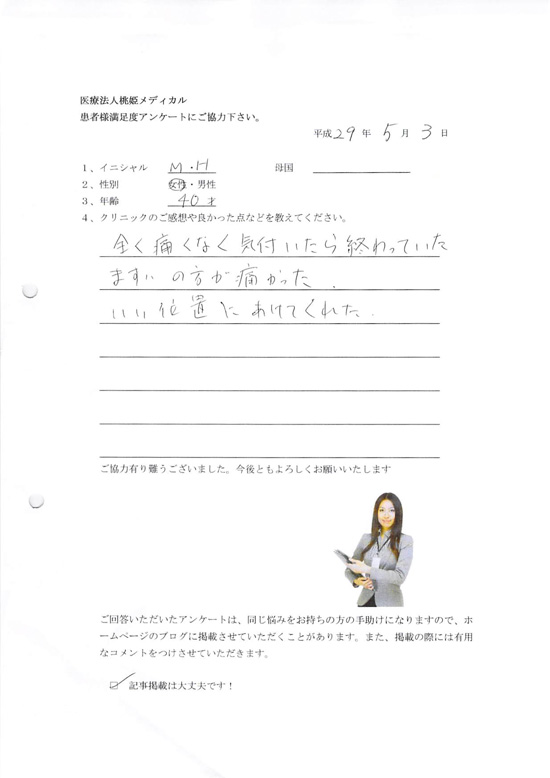 医療法人桃姫メディカル
患者様満足度アンケートにご協力下さい。
平成29年 5月 3日
1、イニシャル M・H 母国
2、性別 女性・男性
3、年齢 40才
4、クリニックのご感想や良かった点などを教えてください。
全く痛くなく気付いたら終わっていた
ますいの方が痛かった.
いい位置にあけてくれた.
ご協力有り難うございました。今後ともよろしくお願いいたします
ご回答いただいたアンケートは、同じ悩みをお持ちの方の手助けになりますので、ホ
ームページのブログに掲載させていただくことがあります。また、掲載の際には有用
なコメントをつけさせていただきます。
☑ 記事掲載は大丈夫です！